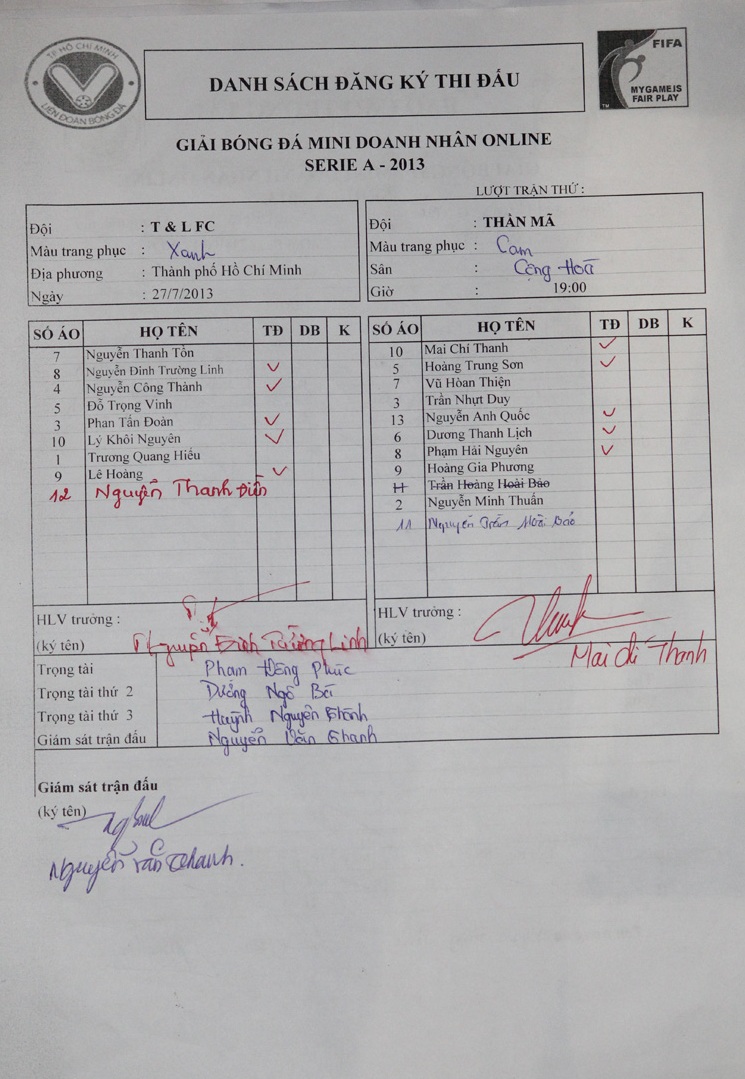 TP HỒ CHÍ MINH
LIÊN ĐOÀN BÓNG ĐÁ
DANH SÁCH ĐĂNG KÝ THI ĐẤU
FIFA
MY GAME IS
FAIR PLAY
TM
GIẢI BÓNG ĐÁ MINI DOANH NHÂN ONLINE
SERIE A - 2013
LƯỢT TRẬN THỨ :
Đội : T & L FC
Màu trang phục : Xanh
Địa phương : Thành phố Hồ Chí Minh
Ngày : 27/7/2013
Đội : THẦN MÃ
Màu trang phục : Cam
Sân : Cộng Hoà
Giờ : 19:00
SỐ ÁO HỌ TÊN TĐ DB K
7 Nguyễn Thanh Tồn
8 Nguyễn Đình Trường Linh
4 Nguyễn Công Thành
5 Đỗ Trọng Vinh
3 Phan Tấn Đoàn
10 Lý Khôi Nguyên
1 Trương Quang Hiếu
9 Lê Hoàng
12 Nguyễn Thanh Điền
SỐ ÁO HỌ TÊN TĐ DB K
10 Mai Chí Thanh
5 Hoàng Trung Sơn
7 Vũ Hòan Thiện
3 Trần Nhựt Duy
13 Nguyễn Anh Quốc
6 Dương Thanh Lịch
8 Phạm Hải Nguyên
9 Hoàng Gia Phương
11 Trần Hoàng Hoài Bảo
2 Nguyễn Minh Thuấn
11 Nguyễn Trần Hoài Bảo
HLV trưởng :
(ký tên) Nguyễn Đình Trường Linh
HLV trưởng :
(ký tên) Mai Chí Thanh
Trọng tài Phạm Hồng Phúc
Trọng tài thứ 2 Dương Ngô
Trọng tài thứ 3 Huỳnh Nguyên Thành
Giám sát trận đấu Nguyễn Văn Thanh
Giám sát trận đấu
(ký tên)
Nguyễn Văn Thanh.